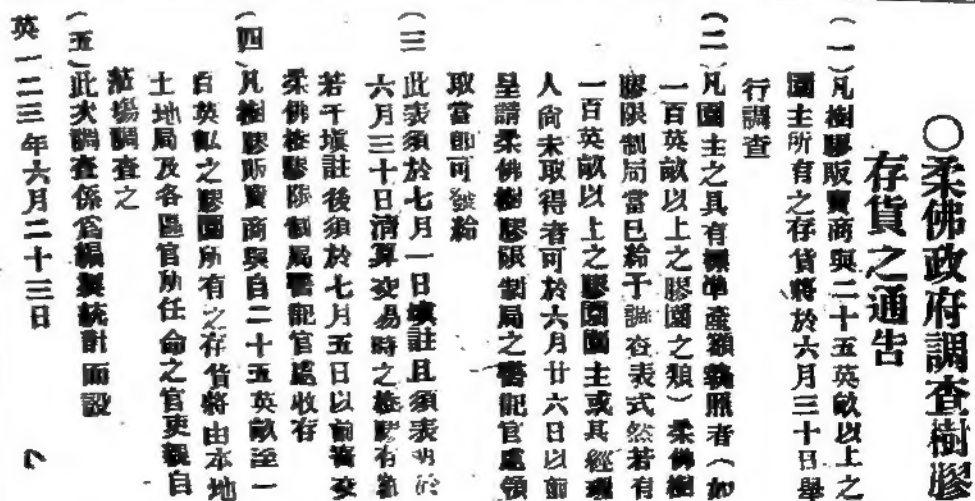 ○柔佛政府調查樹膠
存貨之通告
(一)凡樹膠販賣商與二十五英畝以上之
園主所有之存貨將於六月三十日舉
行調查
(二)凡園主之具有標準產額執照者(如
一百英畝以上之膠園之類)柔佛樹
膠限制局當已給予調查表式然若有
一百英畝以上之膠園園主或其經理
人尙未取得者可於六月廿六日以前
呈請柔佛樹膠限制局之書記官處領
取當卽可發給
(三)此表須於七月一日塡註且須表明於
六月三十日清算交易時之樹膠有若
若干塡註後須於七月五日以前寄交
柔佛樹膠限制局書記官處收存
(四)凡樹膠販賣商與自二十五英畝至一
百英畝之膠園所有之存貨將由本地
土地局及各區官所任命之官吏親自
蒞塲調查之
(五)此次調查係爲編製統計而設
英一二三年六月二十三日